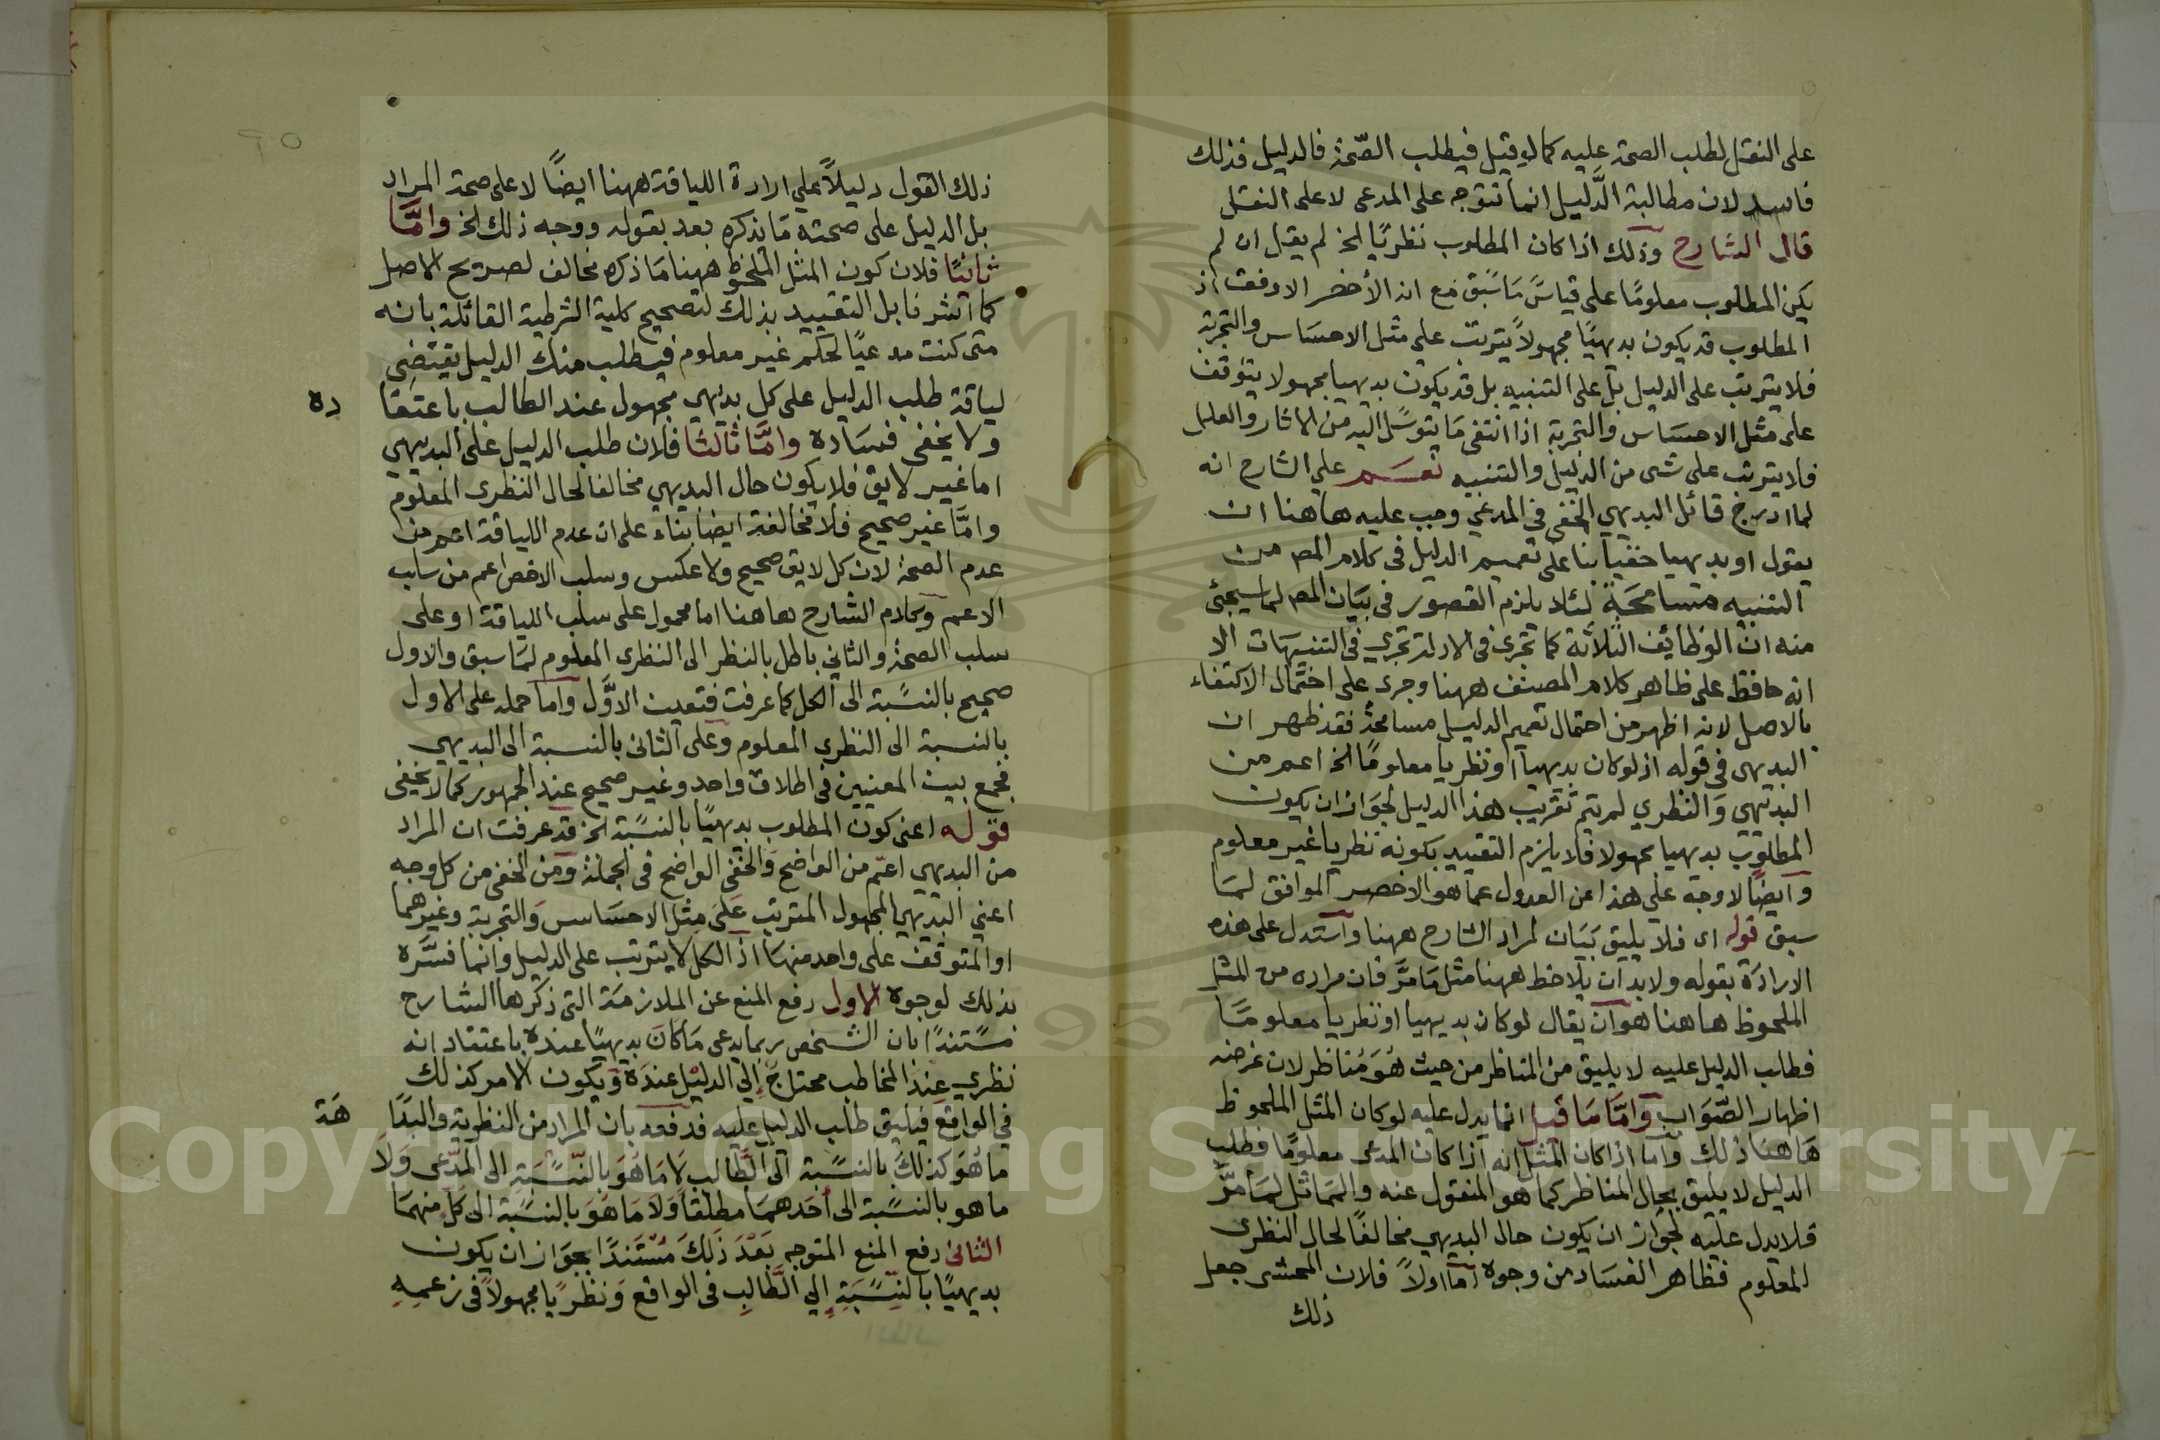 على النقل لطلب الصحة عليه كما لو قيل فيطلب الصحة فالدليل فذلك
فاسد لان مطالبة الدليل انما تتوجه على المدعى لا على النقل
قال الشارح وذلك اذا كان المطلوب نظريًا الخ لم يقل ان لم
يكن المطلوب معلومًا على قياس ما سبق مع انه الأخضر الاوفق اذ
المطلوب قد يكون بديهيًا مجهولاً يترتب على مثل الاحساس والتجربة
فلا يترتب على الدليل بل على التنبيه بل قد يكون بديهيا مجهولا يتوقف
على مثل الاحساس والتجربة اذا انتفى ما يتوسل اليه من الاثار والعلل
فلا يترتب على شئ من الدليل والتنبيه نعم على الشارح انه
لما ادرج قائل البديهي الخفى فى المدعى وجب عليه هاهنا ان
يقول او بديهيا خفيا بنا على تعميم الدليل فى كلام المص من
التنبيه مسامحة لئلا يلزم القصور فى بيان المص لما سيجئ
منه ان الوظائف الثلاثة كما تجرى فى الادلة تجرى فى التنبيهات الا
انه حافظ على ظاهر كلام المصنف ههنا وجرى على احتمال الاكتفاء
بالاصل لانه اظهر من احتمال تعميم الدليل مسامحة فقد ظهر ان
البديهى فى قوله اذ لو كان بديهيا او نظريا معلومًا الخ اعم من
البديهي والنظري لم يتم تقريب هذا الدليل لجواز ان يكون
المطلوب بديهيا مجهولا فلا يلزم التقييد بكونه نظريا غير معلوم
وايضًا لا وجه على هذا عن العدول عما هو الاخصر الموافق لما
سبق قوله اى فلا يليق بيان لمراد الشارح ههنا واستدل على هذه
الارادة بقوله ولا بد ان يلاحظ ههنا مثل ما مر فان مراده من المثل
الملحوظ هاهنا هو ان يقال لو كان بديهيا او نظريا معلومًا
فطلب الدليل عليه لا يليق من المناظر من حيث هو مناظر لان غرضه
اظهار الصواب واما ما قيل انما يدل عليه لو كان المثل الملحوظ
هاهنا ذلك واما اذا كان المثل انه اذا كان المدعى معلومًا فطلب
الدليل لا يليق بحال المناظر كما هو المنقول عنه والمماثل لما مر
فلا يدل عليه لجواز ان يكون حال البديهي مخالفًا لحال النظرى
المعلوم فظاهر الفساد من وجوه اما اولاً فلان المحشى جعل
ذلك
ذلك القول دليلاً على ارادة اللياقة ههنا ايضًا لا على صحة المراد
بل الدليل على صحته ما يذكره بعد بقوله ووجه ذلك الخ واما
ثانيًا فلان كون المثل الملحوظ ههنا ما ذكره مخالف لصريح الاصل
كما اشرنا بل التقييد بذلك لتصحيح كلية الشرطية القائلة بانه
متى كنت مدعيًا لحكم غير معلوم فيطلب منك الدليل يقتضى
لياقة طلب الدليل على كل بديهي مجهول عند الطالب باعتقا ده
ولا يخفى فساده واما ثالثا فلان طلب الدليل على البديهي
اما غير لايق فلا يكون حال البديهي مخالفا لحال النظرى المعلوم
واما غير صحيح فلا مخالفة ايضا بناء على ان عدم اللياقة اعم من
عدم الصحة لان كل لايق صحيح ولا عكس وسلب الاخص اعم من سلب
الاعم وكلام الشارح هاهنا اما محمول على سلب اللياقة او على
سلب الصحة والثاني باطل بالنظر الى النظرى المعلوم لما سبق والاول
صحيح بالنسبة الى الكل كما عرفت فتعين الاول واما حمله على الاول
بالنسبة الى النظري المعلوم وعلى الثانى بالنسبة الى البديهي
فجمع بين المعنيين فى اطلاق واحد وغير صحيح عند الجمهور كما لا يخفى
قوله اعنى كون المطلوب بديهيًا بالنسبة الخ قد عرفت ان المراد
من البديهي اعم من الواضح والخفى الواضح فى الجملة ومن الخفى من كل وجه
اعني البديهي المجهول المترتب على مثل الاحساس والتجربة وغيرهما
او المتوقف على واحد منها اذ الكل لا يترتب على الدليل وانما فسره
بذلك لوجوه الاول رفع المنع عن الملازمة التى ذكرها الشارح
مستندًا بان الشخص ربما يدعى ما كان بديهيًا عنده باعتقاد انه
نظري عند المخاطب محتاج الي الدليل عنده ويكون الامر كذلك
في الواقع فيليق طلب الدليل عليه فدفعه بان المراد من النظرية والبدا هة
ما هو كذلك بالنسبة الى الطالب لا ما هو بالنسبة الى المدعى ولا
ما هو بالنسبة الى احدهما مطلقا ولا ما هو بالنسبة الى كل منهما
الثانى رفع المنع المتوجه بعد ذلك مستندًا بجواز ان يكون
بديهيًا بالنسبة الي الطالب فى الواقع ونظريًا مجهولاً فى زعمه